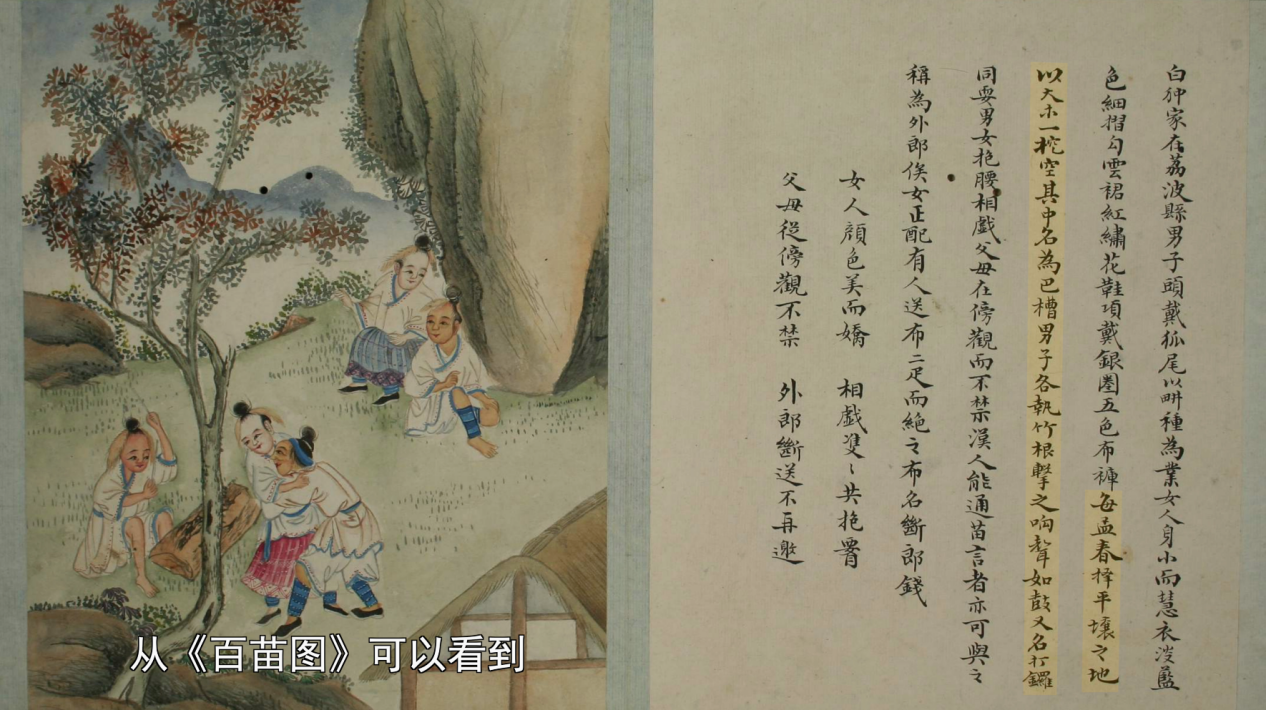 白狆家在荔波縣男子頭戴狐尾以畊種為業女人身小而慧衣淡藍
色細摺勾雲裙紅繡花鞋項戴銀圈五色布褲每孟春擇平壤之地
以大木一挖空其中名為巴槽男子各執竹根擊之响聲如鼓又名打鑼
同耍男女抱腰相戲父母在傍觀而不禁漢人能通苗言者亦可與之
稱為外郎俟女正配有人送布二疋而絕之布名斷郎錢
女人顏色美而嬌 相戲雙〻共抱
父母從傍觀不禁 外郎斷送不再邀
从《百苗图》可以看到